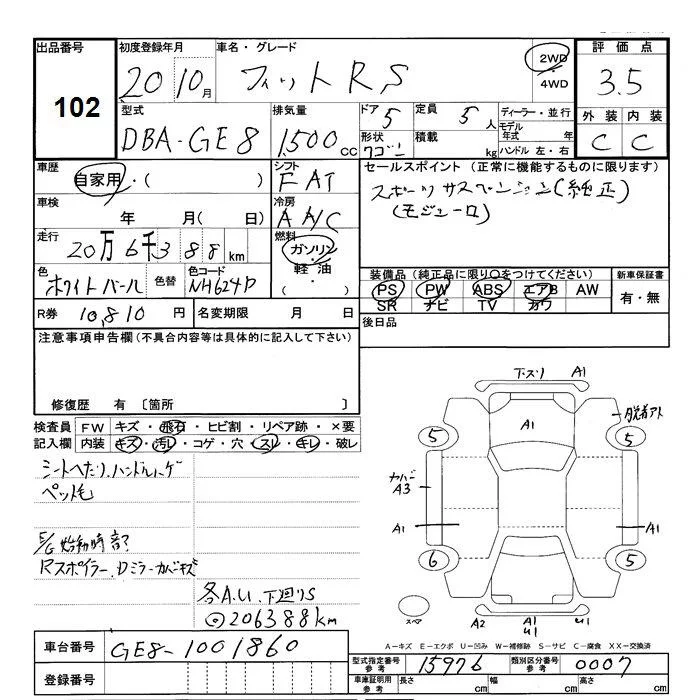 出品番号 初度登録年月 車名・グレード 評価点
102 20 10月 フィットRS 2WD・4WD 3.5
型式 排気量 ドア 5 定員 5人 ディーラー・並行 外装 内装
DBA-GE8 1,500cc 形状 ワゴン 積載 kg モデル年式 年 C C
ハンドル 左・右
車歴 自家用・( ) シフト FAT セールスポイント (正常に機能するものに限ります)
スポーツサスペンション(純正)
(モジューロ)
車検 年 月( 日) 冷房 AA/C
走行 20万6千388km 燃料 ガソリン・軽油・( )
色 ホワイトパール 色替 色コード NH624P
装備品 (純正品に限り○をつけてください) 新車保証書
PS PW ABS エアB AW 有・無
SR ナビ TV カワ
R券 10,810円 名変期限 月 日 後日品
注意事項申告欄 (不具合内容等は具体的に記入して下さい)
修復歴 有 〔箇所 〕
検査員 FW キズ・飛石・ヒビ割・リペア跡・×要
記入欄 内装 キズ・汚レ・コゲ・穴・スレ・キレ・破レ
シートへたり、ハンドルハゲ
ペット毛
E/G始動時音
Rスポイラー、Dミラーカバーキズ
各A.U、下廻りS
◎206388km
下スリ A1
A1
脱着アト
5 5
カバー
A3
A1 A1
6 5
スペア A2 A1 U1 U1
A−キズ E−エクボ U−凹み W−補修跡 S−サビ C−腐食 XX−交換済
車台番号 GE8-1001860
型式指定番号 参考 15976 類別区分番号 参考 0007
登録番号
車庫証明用 参考 長さ cm 幅 cm 高さ cm